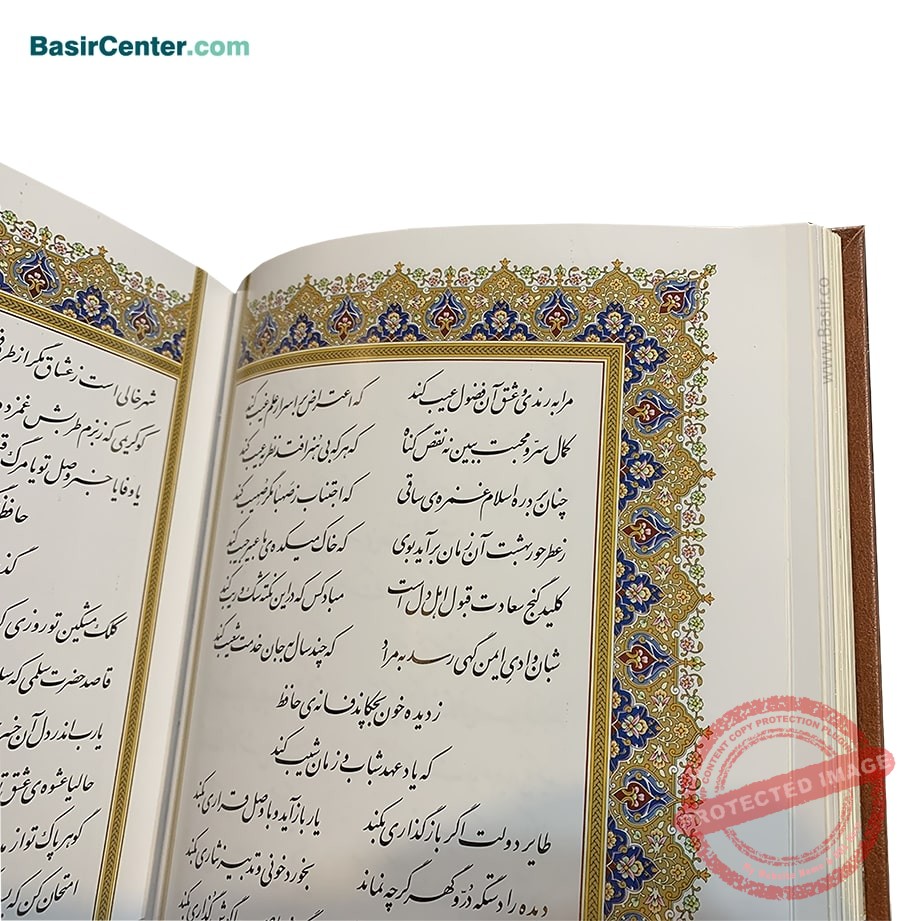 BasirCenter.com
مرا به رندی و عشق آن فضول عیب کند که اعتراض بر اسرار علم غیب کند
کمال سرّ و محبت ببین نه نقص گناه که هر که بی هنر افتد نظر به عیب کند
چنان بزد ره اسلام غمزه‌ی ساقی که اجتناب ز صهبا مگر صهیب کند
ز عطر حور بهشت آن زمان برآید بوی که خاک میکده‌ی ما عبیر جیب کند
کلید گنج سعادت قبول اهل دل است مباد کس که در این نکته شک و ریب کند
شبان وادی ایمن گهی رسد به مراد که چند سال به جان خدمت شعیب کند
ز دیده خون بچکاند فسانه‌ی حافظ
که یاد عهد شباب و زمان شیب کند
طایر دولت اگر باز گذاری بکند یار بازآید و با وصل قراری بکند
دیده را دستگه درّ و گهر گرچه نماند بخورد خونی و تدبیر نثاری بکند
شهر خالی است ز عشاق مگر از طرفی
کو کریمی که ز بزم طربش غمزده
یا وفا یا خبر وصل تو یا مرگ
حافظ
کلک مشکین تو روزی که
قاصد حضرت سلمی که
یارب اندر دل آن
حالیا عشوه‌ی عشق
گوهر پاک تو از
امتحان کن که
www.Basir.co
CONTENT COPY PROTECTION PLUGIN
PROTECTED IMAGE